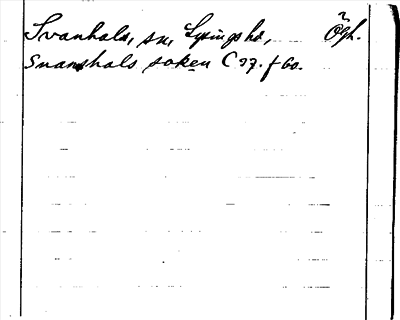 Svanhals, sn, Lysings hd, Ögh.
Suanshals soken C 27. f 60.